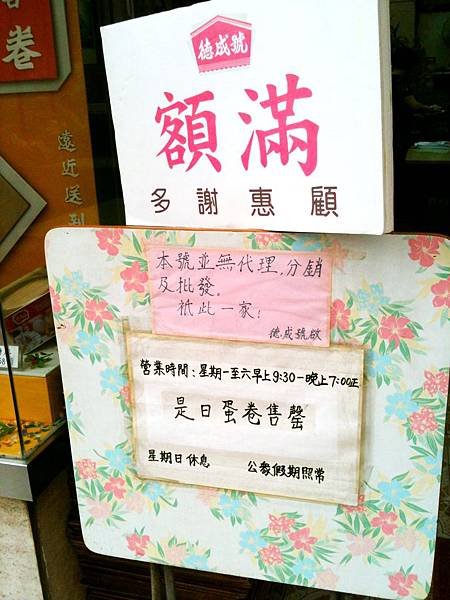 德成號
額滿
多謝惠顧
卷
遠近送
本號並無代理，分銷
及批發。
祇此一家！
德成號啟
營業時間：星期一至六早上9:30－晚上7:00正
是日蛋卷售罄
星期日休息 公眾假期照常